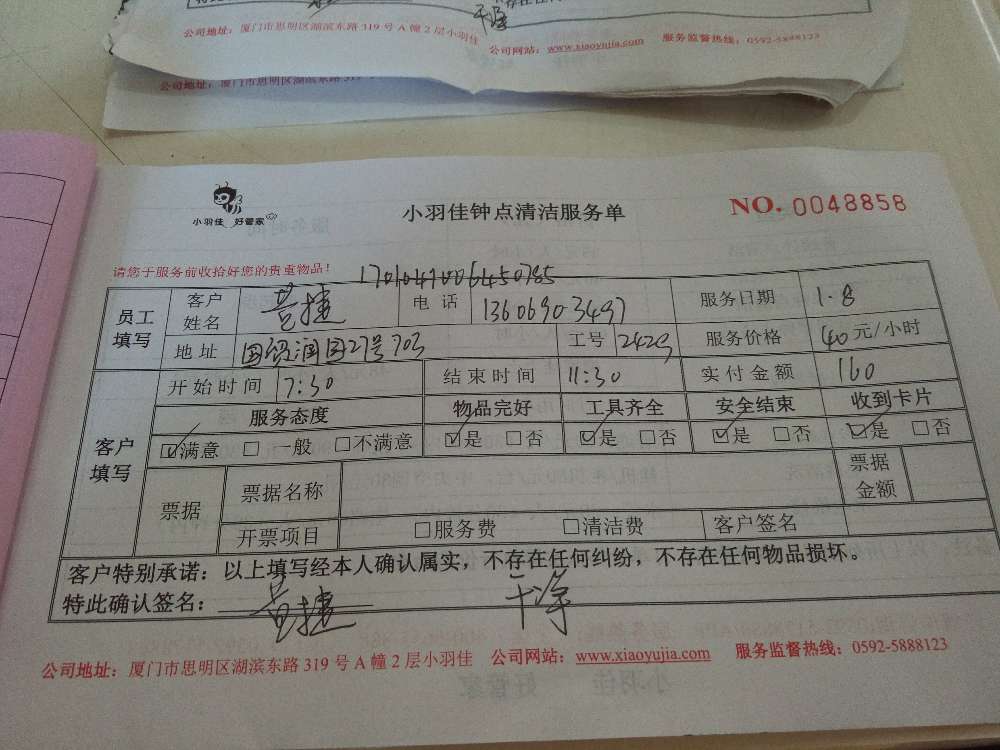 公司地址：厦门市思明区湖滨东路 319 号 A 幢 2 层小羽佳 公司网站：www.xiaoyujia.com 服务监督热线：0592-5888123
公司地址：厦门市思明区湖滨东路 319
小羽佳 好管家
小羽佳钟点清洁服务单
NO. 0048858
请您于服务前收拾好您的贵重物品！
1701047006450785
员工填写 客户姓名 黄捷 电话 13606903497 服务日期 1.8
地址 国贸润园27号703 工号 2429 服务价格 40 元/小时
客户填写 开始时间 7:30 结束时间 11:30 实付金额 160
服务态度 物品完好 工具齐全 安全结束 收到卡片
☑满意 □一般 □不满意 ☑是 □否 ☑是 □否 ☑是 □否 ☑是 □否
票据 票据名称 票据金额
开票项目 □服务费 □清洁费 客户签名
客户特别承诺：以上填写经本人确认属实，不存在任何纠纷，不存在任何物品损坏。
特此确认签名： 黄捷 干净
公司地址：厦门市思明区湖滨东路 319 号 A 幢 2 层小羽佳 公司网站：www.xiaoyujia.com 服务监督热线：0592-5888123